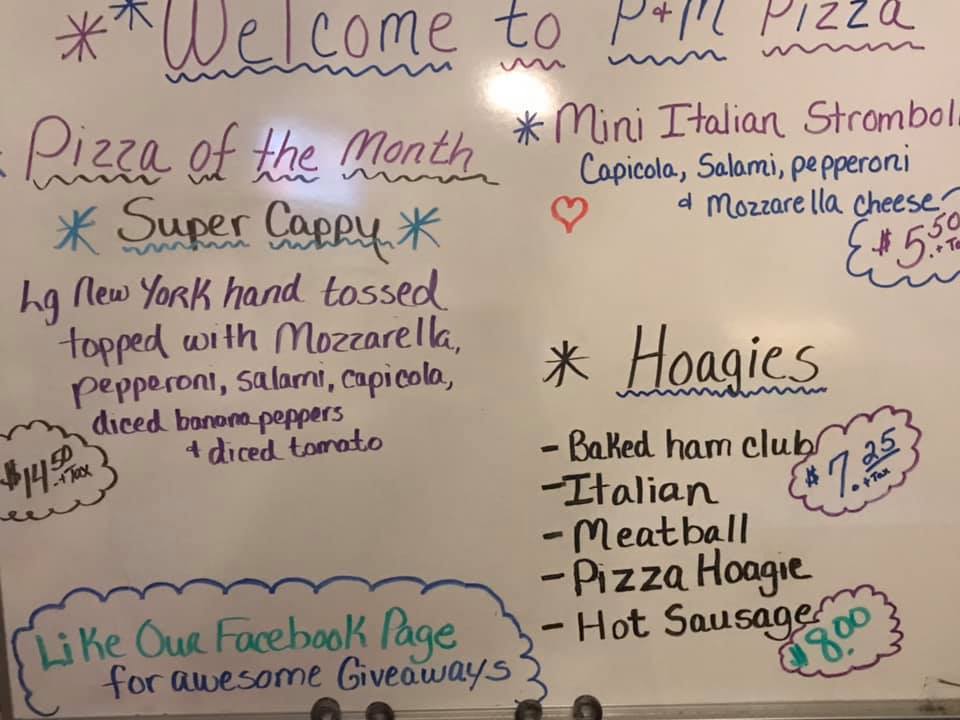 Welcome to P+M Pizza
Pizza of the Month
Super Cappy
Lg New York hand tossed
topped with Mozzarella,
pepperoni, salami, capicola,
diced banana peppers
+ diced tomato
$14.50 + Tax
Like Our Facebook Page
for awesome Giveaways
Mini Italian Strombol
Capicola, Salami, pepperoni
& Mozzarella cheese
$5.50 + Ta
Hoagies
- Baked ham club
- Italian
- Meatball
- Pizza Hoagie
- Hot Sausage
$7.25 + Tax
$8.00